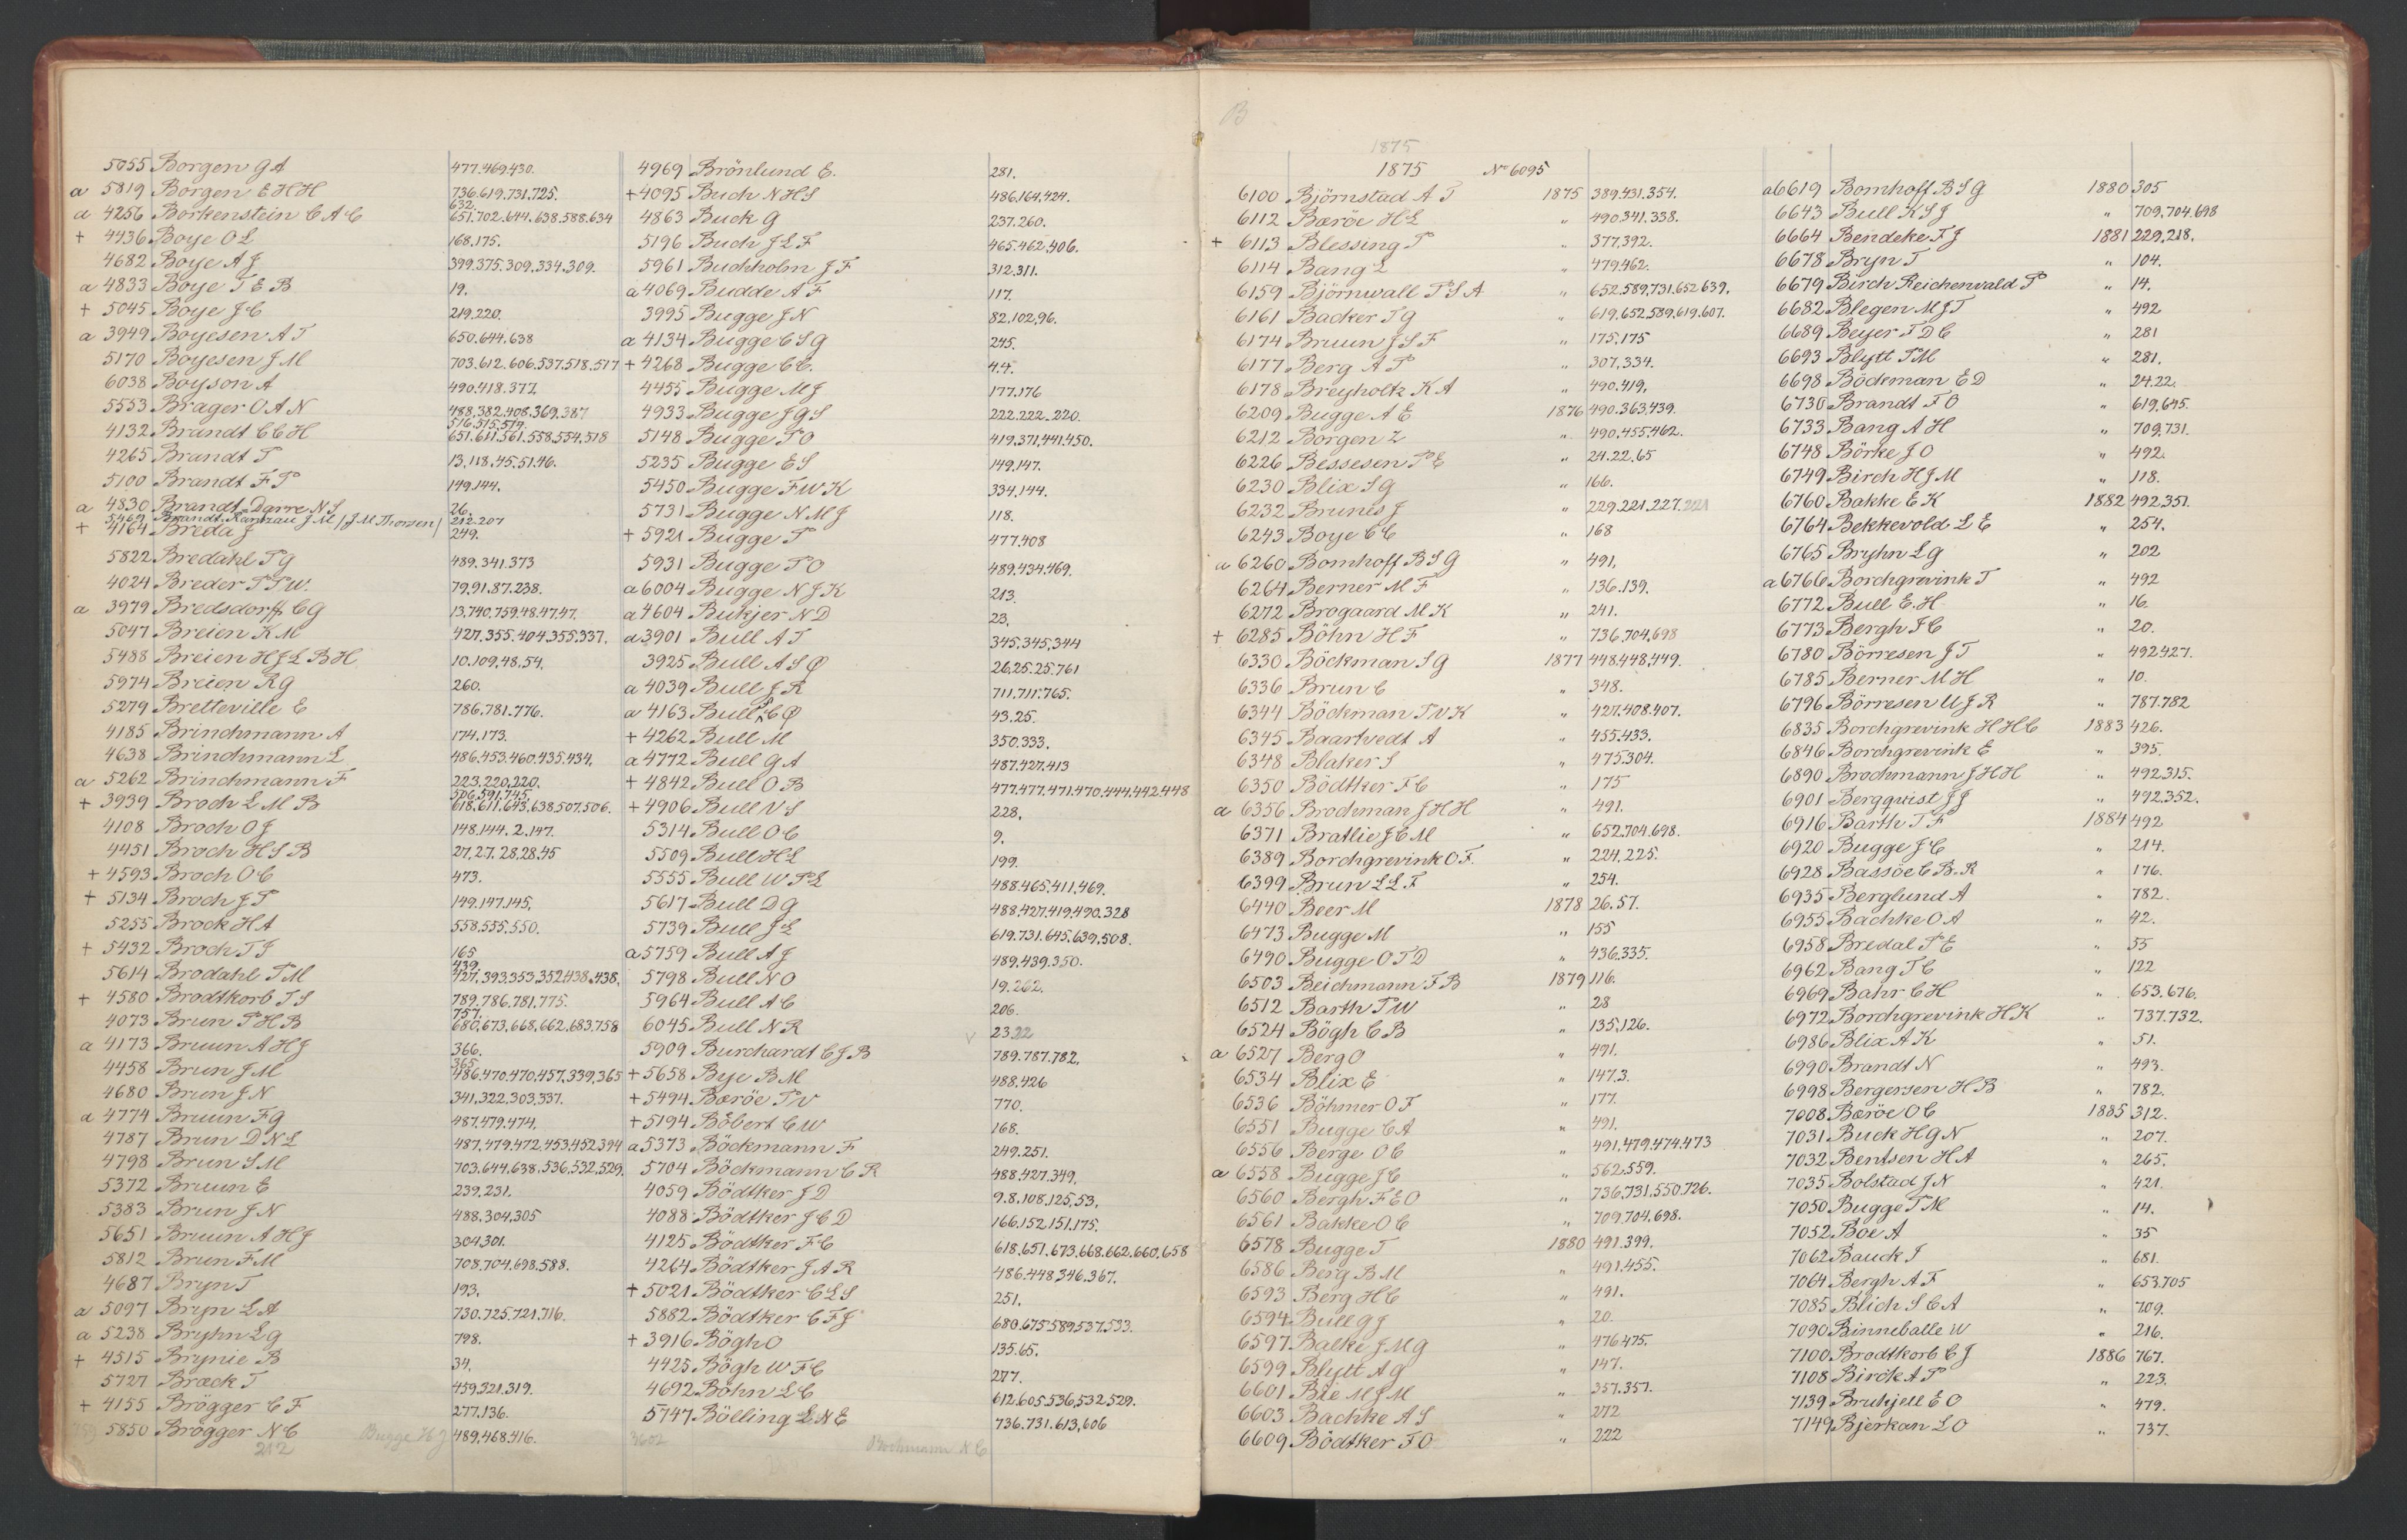 5055 Borgen G A 477.469.430.
a 5819 Borgen E H H 736.619.731.725.
632.
a 4256 Borkenstein C A C 651.702.644.638.588.634
+ 4436 Boye O L 168.175.
4682 Boye A J 399.375.309.334.309.
a 4833 Boye T E B 19.
+ 5045 Boye J C 219.220.
a 3949 Boyesen A T 650.644.638
5170 Boyesen J M 703.612.606.537.518.517
6038 Boyson A 490.418.377.
5553 Brager O A N 488.382.408.369.387
516.515.514.
4132 Brandt C C H 651.611.561.558.554.518
4265 Brandt P 13.118.45.51.46.
5100 Brandt F P 149.144.
a 4830 Brandt-Darre N S 26.
5469 Brandt-Rantzau J M / J M Thorsen / 212.207
+ 4164 Breda J 249.
5822 Bredahl P G 489.341.373
4024 Breder P T W. 79.91.87.238.
a 3979 Bredsdorff C G 13.740.759.48.47.47.
5047 Breien K M 427.355.404.355.337.
5488 Breien H J L B H 10.109.48.54.
5974 Breien R G 260.
5279 Bretteville E 786.781.776.
4185 Brinchmann A 174.173.
4638 Brinchmann L 486.453.460.435.434.
a 5262 Brinchmann F 223.220.220.
506.591.745.
+ 3939 Broch L M B 618.611.643.638.507.506.
4108 Broch O J 148.144.2.147.
4451 Broch H S B 27.27.28.28.45
+ 4593 Broch O C 473.
+ 5134 Broch J P 149.147.145.
5255 Brock H A 558.555.550.
+ 5432 Broch T J 165
439.
5614 Brodahl T M 427.393.353.352.438.438.
+ 4580 Brodtkorb T S 789.786.781.775.
757.
4073 Brun P H B 680.673.668.662.683.758
a 4173 Bruun A H J 366.
365.
4458 Brun J M 486.470.470.457.339.365
4680 Brun J N 341.322.303.337.
a 4774 Bruun F G 487.479.474.
4787 Brun D N L 487.479.472.453.452.394
4798 Brun S M 703.644.638.536.532.529.
5372 Bruun E 239.231.
5383 Brun J N 488.304.305
5651 Bruun A H J 304.301.
5812 Brun F M 708.704.698.588.
4687 Bryn T 193.
a 5097 Bryn L A 730.725.721.716.
a 5238 Bryhn L G 798.
+ 4515 Brynie B 34.
5727 Bræck T 459.321.319.
+ 4155 Brøgger C F 277.136.
5850 Brögger N C 489.468.416.
212 Bugge H J
4969 Brönlund E. 281.
+ 4095 Buch N H S 486.164.424.
4863 Buck G 237.260.
5196 Buch J L F 465.462.406.
5961 Buchholm J F 312.311.
a 4069 Budde A F 117.
3995 Bugge J N 82.102.96.
a 4134 Bugge C S G 245.
+ 4268 Bugge C C. 4.4.
4455 Bugge M J 177.176
4933 Bugge J G S 222.222.220.
5148 Bugge P O 419.371.441.450.
5235 Bugge E S 149.147.
5450 Bugge F W K 334.144.
5731 Bugge N M J 118.
+ 5921 Bugge P 477.408
5931 Bugge T O 489.434.469.
a 6004 Bugge N J K 213.
a 4604 Bukjer N D 23.
a 3901 Bull A T 345.345.344
3925 Bull A S Ø 26.25.25.761
a 4039 Bull J R 711.711.765.
a 4163 Bull C Ø 43.25.
+ 4262 Bull M 350.333.
a 4772 Bull G A 487.427.413
+ 4842 Bull O B 477.477.471.470.444.442.448
+ 4906 Bull N S 228.
5314 Bull O C 9.
5509 Bull H L 199.
5555 Bull W P L 488.465.411.469.
5617 Bull D G 488.427.419.490.328
5739 Bull J L 619.731.645.639.508.
a 5759 Bull A J 489.439.350.
5798 Bull N O 19.262.
5964 Bull A C 206.
6045 Bull N R 23.22
5909 Burchardt C J B 789.787.782.
+ 5658 Bye B M 488.426
+ 5494 Bærøe T W 770.
+ 5194 Böbert C W 168.
a 5373 Böckmann F 249.251.
5704 Böckmann C R 488.427.349.
4059 Bödtker J D 9.8.108.125.53.
4088 Bödtker J C D 166.152.151.175.
4125 Bödtker F C 618.651.673.668.662.660.658
4264 Bödtker J A R 486.448.346.367.
+ 5021 Bödtker C L S 251.
5882 Bödtker C F J 680.675.589.537.533.
+ 3916 Bögh O 135.65.
4425 Bögh W F C 277.
4692 Böhn L C 612.605.536.532.529.
5747 Bölling L N E 736.731.613.606
3602 Brochmann N C
B
1875
1875 No 6095
6100 Björnstad A T 1875 389.431.354.
6112 Bærøe H L " 490.341.338.
+ 6113 Blessing P " 377.392.
6114 Bang L " 479.462.
6159 Björnwall P S A " 652.589.731.652.639.
6161 Backer T G " 619.652.589.619.607.
6174 Bruun J S F " 175.175
6177 Berg A P " 307.334.
6178 Breyholtz K A " 490.419.
6209 Bugge A E 1876 490.363.439.
6212 Borgen Z " 490.455.462.
6226 Bessesen P E " 24.22.65
6230 Blix S G " 166.
6232 Brunes J " 229.221.227.221
6243 Boye C C " 168
a 6260 Bomhoff B S G " 491.
6264 Berner M F " 136.139.
6272 Brogaard M K " 241.
+ 6285 Böhn H F " 736.704.698
6330 Böckman S G 1877 448.448.449.
6336 Brun C " 348.
6344 Böckman T W K " 427.408.407.
6345 Baartvedt A " 455.433.
6348 Blaker S " 475.304.
6350 Bödtker F C " 175
a 6356 Brochman J H H " 491.
6371 Bratlie J E M " 652.704.698.
6389 Borchgrevink O F. " 224.225.
6399 Brun L L F " 254.
6440 Beer M 1878 26.57.
6473 Bugge M " 155
6490 Bugge O T D " 436.335.
6503 Beichmann F B 1879 116.
6512 Barth T W " 28
6524 Bögh C B " 135.126.
a 6527 Berg O " 491.
6534 Blix E " 147.3.
6536 Böhmer O F " 177.
6551 Bugge C A " 491.
6556 Berge O C " 491.479.474.473
a 6558 Bugge J C " 562.559.
6560 Bergh F E O " 736.731.550.726.
6561 Bakke O C " 709.704.698.
6578 Bugge T 1880 491.399.
6586 Berg B M " 491.455.
6593 Berg H C " 491.
6594 Bull G J " 20.
6597 Balke J M G " 476.475.
6599 Blytt A G " 147.
6601 Bie M J M " 357.357.
6603 Bachke A S " 272
6609 Bödtker F O " 222
a 6619 Bomhoff B S G 1880 305
6643 Bull K S J " 709.704.698
6664 Bendeke F J 1881 229.218.
6678 Bryn T " 104.
6679 Birch Reichenwald P " 14.
6682 Blegen M J T " 492
6689 Beyer T D C " 281
6693 Blytt P M " 281.
6698 Böckman E D " 24.22.
6730 Brandt F O " 619.645.
6733 Bang A H " 709.731.
6748 Börke J O " 492.
6749 Birch H J M " 118.
6760 Bakke E K 1882 492.351.
6764 Bekkevold L E " 254.
6765 Bryhn L G " 202
a 6766 Borchgrevink T " 492
6772 Bull E. H " 16.
6773 Bergh J C " 20.
6780 Börresen J T " 492.427.
6785 Berner M H " 10.
6796 Börresen U J R " 787.782
6835 Borchgrevink H H C 1883 426.
6846 Borchgrevink E " 395
6890 Brochmann J H H " 492.315.
6901 Bergquist J J " 492.352.
6916 Barth T F 1884 492
6920 Bugge J C " 214.
6928 Bassöe C B. R " 176.
6935 Berglund A " 782.
6955 Bachke O A " 42.
6958 Bredal P E " 55
6962 Bang T C " 122
6969 Bahr C H " 653.676.
6972 Borchgrevink H K " 737.732.
6986 Blix A K " 51.
6990 Brandt N " 493.
6998 Bergersen H B " 782.
7008 Bærøe O C 1885 312.
7031 Buck H G N " 207.
7032 Bentsen H A " 265.
7035 Bolstad J N " 421.
7050 Bugge T M " 14.
7052 Boe A " 35
7062 Bauck J " 681.
7064 Bergh A F " 653.705
7085 Blich S C A " 709.
7090 Binneballe W " 216.
7100 Brodtkorb C J 1886 767.
7108 Birck A P " 223.
7139 Brukjell E O " 479.
7149 Bjerkan L O " 737.